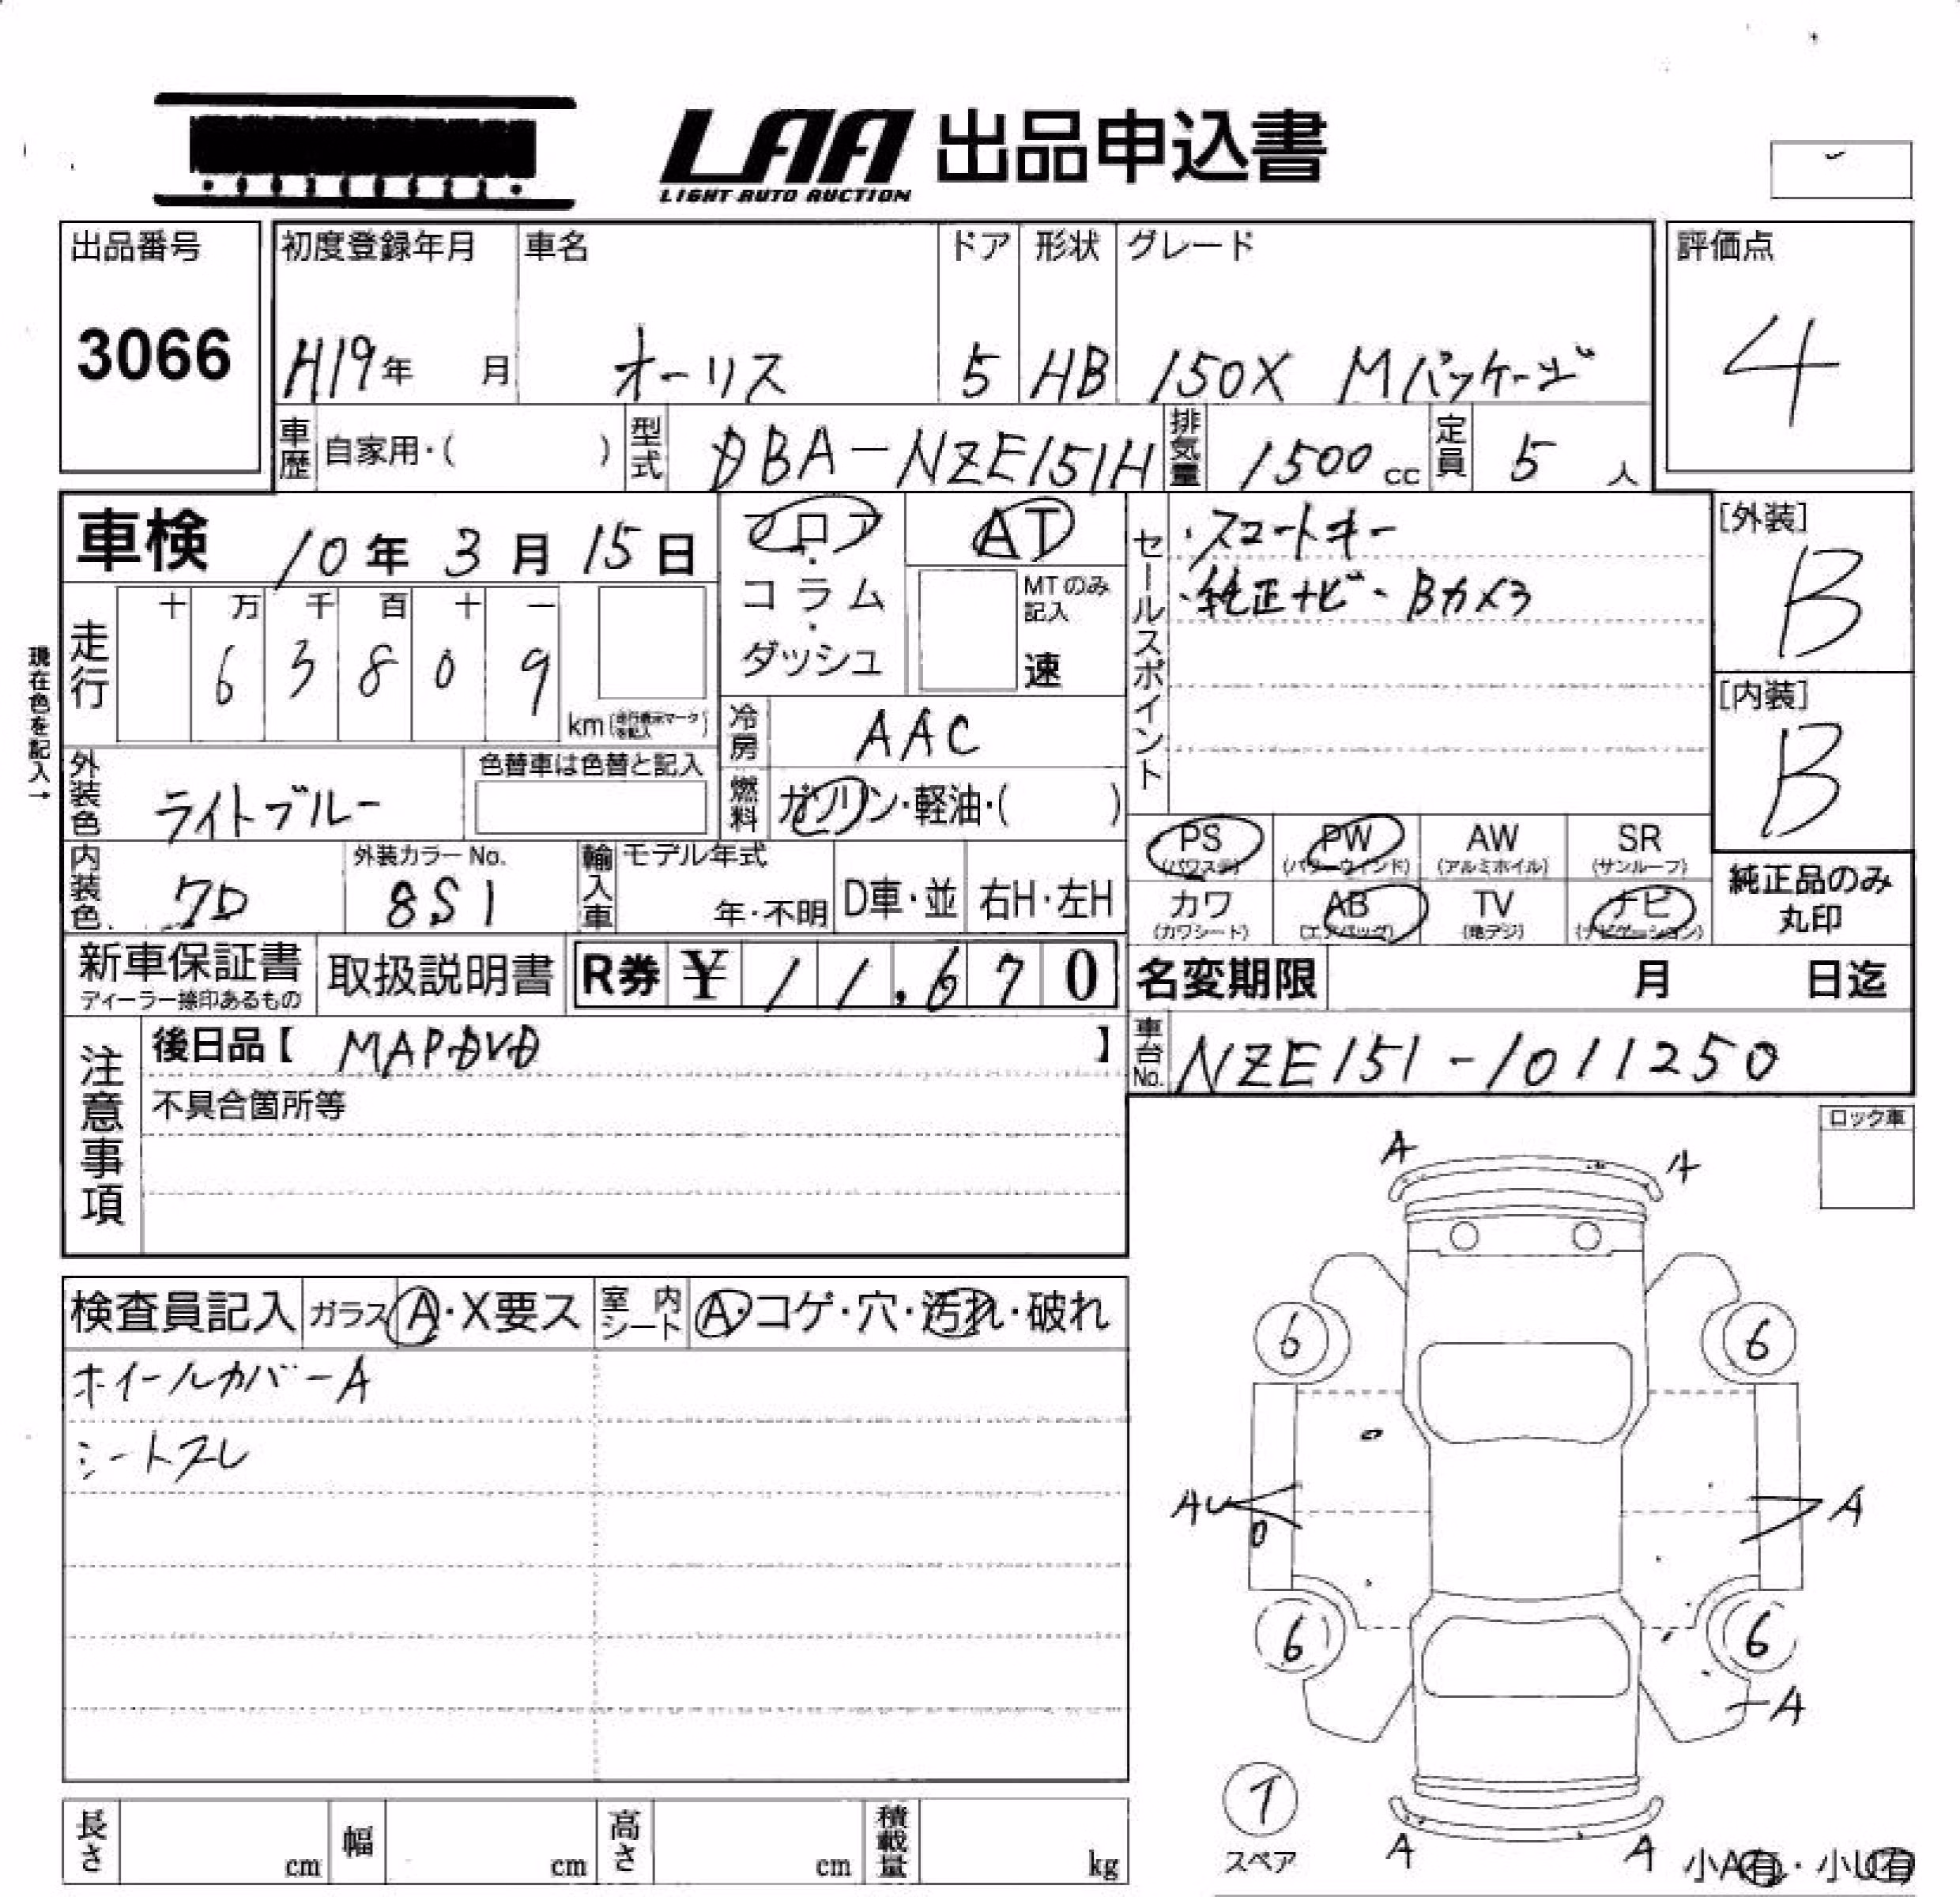 LAA 出品申込書
LIGHT AUTO AUCTION
出品番号 初度登録年月 車名 ドア 形状 グレード 評価点
3066 H19年 月 オーリス 5 HB 150X Mパッケージ 4
車歴 自家用・( ) 型式 DBA-NZE151H 排気量 1500cc 定員 5人
車検 10年3月15日 フロア・コラム・ダッシュ AT
MTのみ記入 速
セールスポイント
・スマートキー
・純正ナビ・Bカメラ
[外装] B
[内装] B
現在色を記入→
走行 十 万 千 百 十 一
6 3 8 0 9 km
冷房 AAC
外装色 ライトブルー 色替車は色替と記入
燃料 ガソリン・軽油・( )
PS (パワステ) PW (パワーウインド) AW (アルミホイル) SR (サンルーフ)
カワ (カワシート) AB (エアバッグ) TV (地デジ) ナビ (ナビゲーション)
純正品のみ丸印
内装色 7D 外装カラーNo. 8S1 輸入車 モデル年式 年・不明 D車・並 右H・左H
新車保証書 ディーラー捺印あるもの 取扱説明書 R券 ¥ 11,670
名変期限 月 日迄
車台No. NZE151-1011250
注意事項
後日品【 MAPDVD 】
不具合箇所等
ロック車
検査員記入 ガラス A・X要ス 室内シート A・コゲ・穴・汚れ・破れ
ホイールカバーA
シートスレ
A A
6 6
AU A
6 6
A
スペア
A A
小A有・小U有
長さ cm 幅 cm 高さ cm 積載量 kg